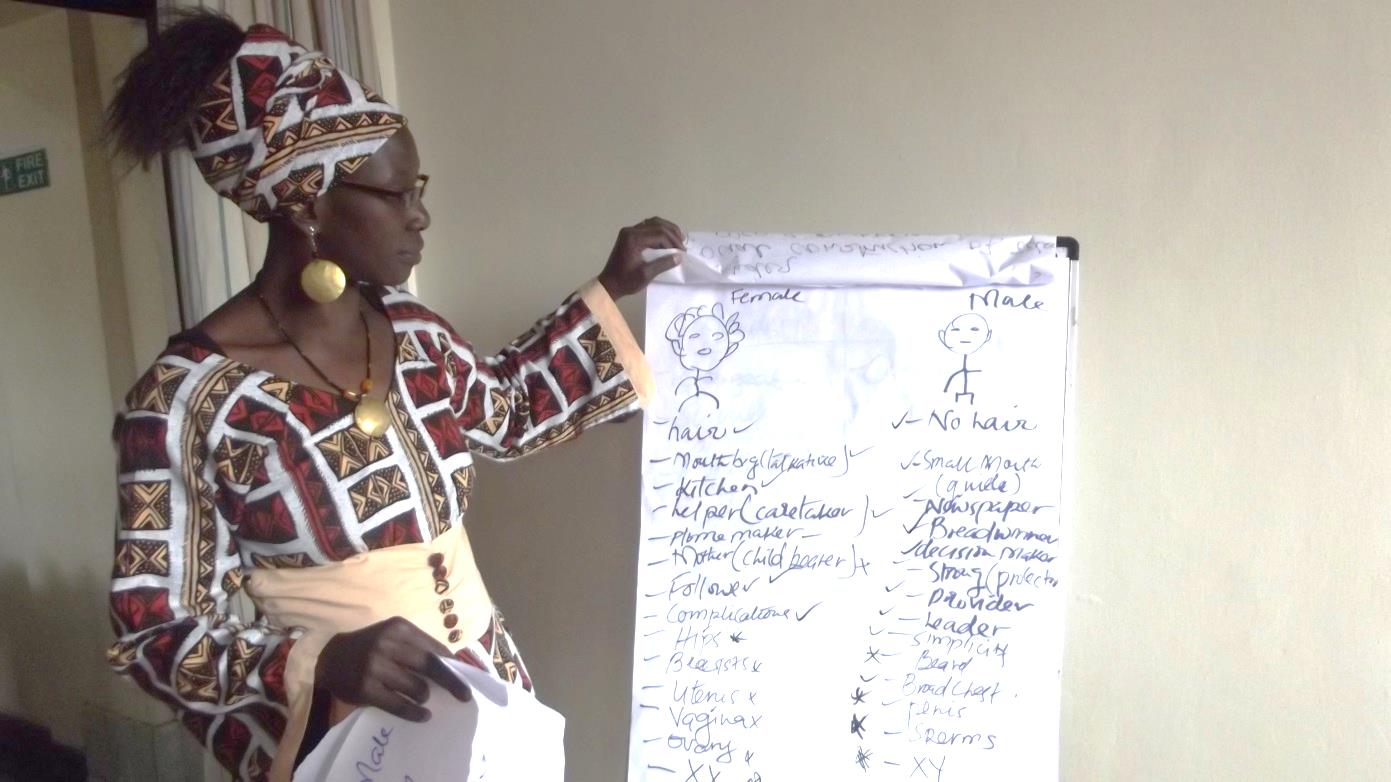 FIRE
EXIT
construction of
Female
Male
- hair ✓
- Mouth big (talkative) ✓
- Kitchen ✓
- helper (caretaker) ✓
- Home maker -
- Mother (child bearer) x
- Follower ✓
- Complications ✓
- Hips *
- Breasts x
- Uterus x
- Vagina x
- Ovary x
- XX
✓ - No hair
✓ - Small Mouth
✓ - Newspaper
✓ - Breadwinner
✓ decision maker
✓ - Strong (protector
✓ - Provider
✓ - Leader
✓ - Simplicity
* - Beard
✓ - Broad Chest
* - Penis
* - Sperms
* - XY
Male